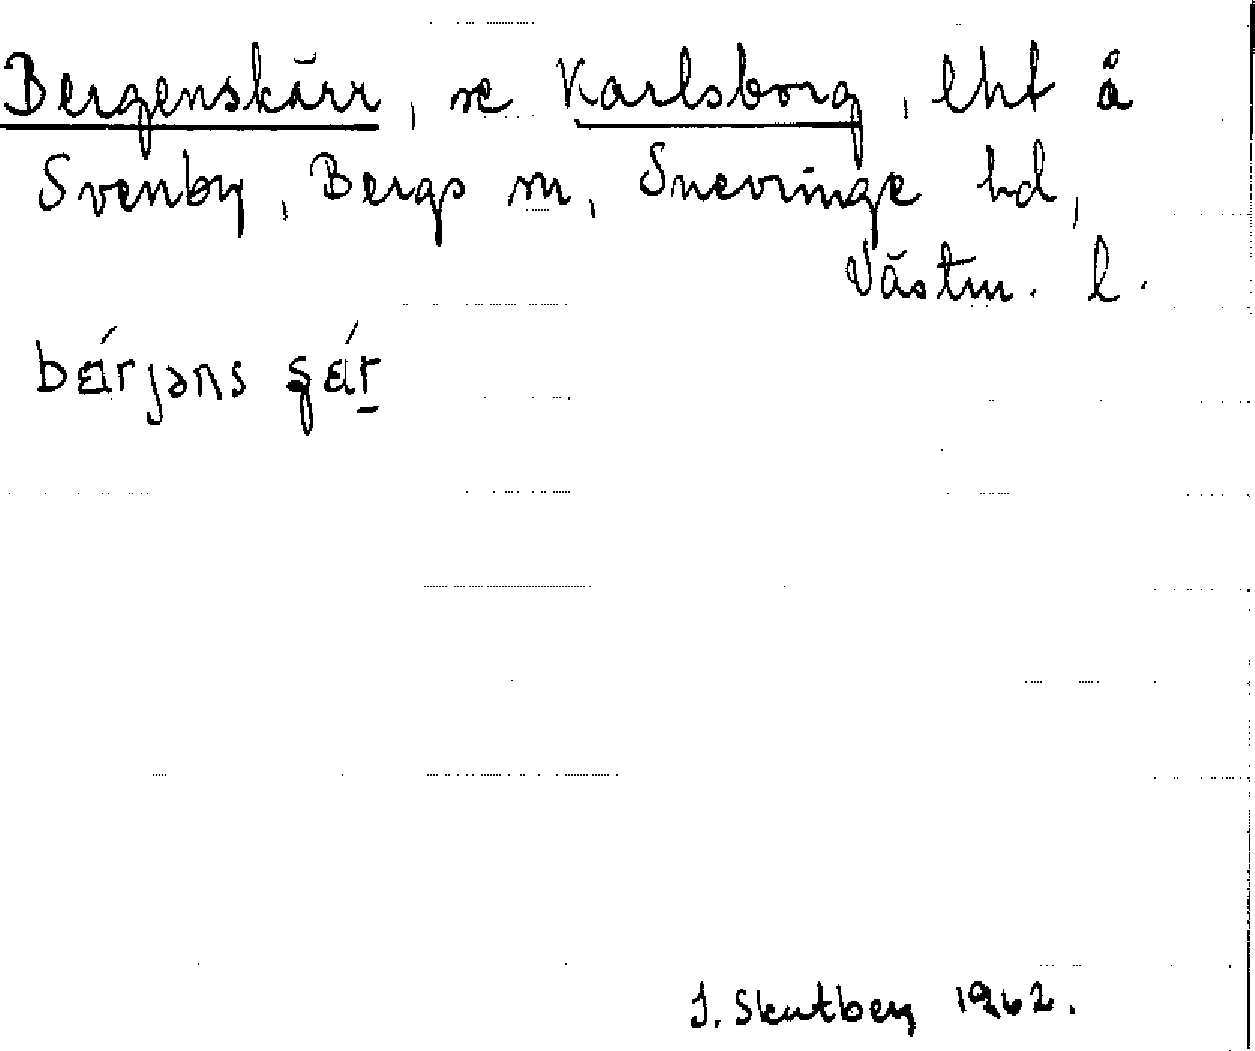 Bergenskärr, se Karlsborg, lht å
Svenby, Bergs sn, Snevringe hd,
Västm. l.
bɛ́rjəns ʂɛ́r
J. Skutberg 1962.